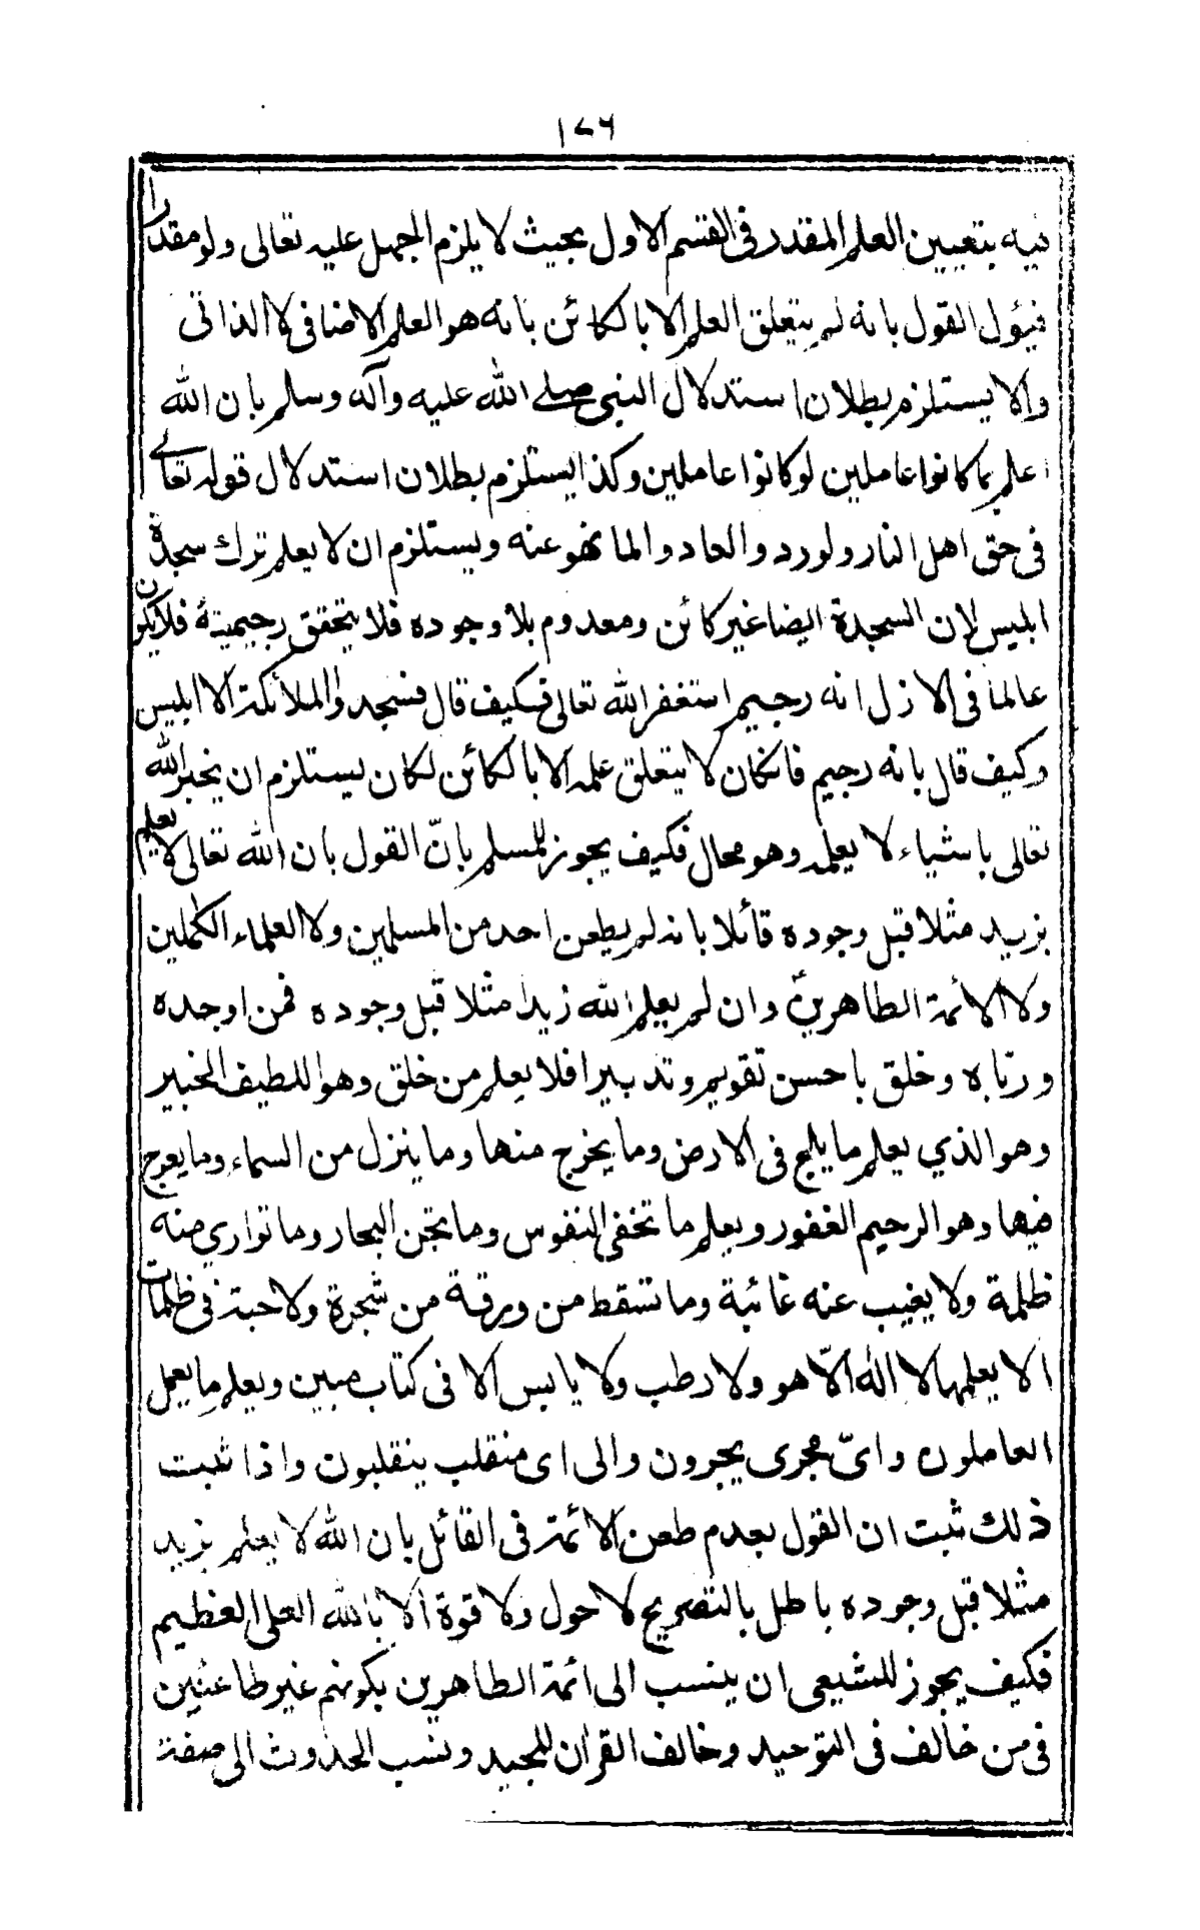 ١٧٦
فيه بتعيين العلم المقدر فى القسم الاول بحيث لا يلزم الجهل عليه تعالى ولو مقدرا
فيئول القول بانه لم يتعلق العلم الا بالكائن بانه هو العلم الاضافى لا الذاتى
والا يستلزم بطلان استدلال النبى صلے الله عليه وآله وسلم بان الله
اعلم بما كانوا عاملين لو كانوا عاملين وكذا يستلزم بطلان استدلال قوله تعالے
فى حق اهل النار ولو ردو العادو الما نهو عنه ويستلزم ان لا يعلم ترك سجدة
ابليس لان السجدة ايضا غير كائن ومعدوم بلا وجوده فلا يتحقق رجيميتهٔ فلا يكون
عالما فى الازل انه رجيم استغفر الله تعالى فكيف قال فسجدوا الملائكة الا ابليس
وكيف قال بانه رجيم فانكان لا يتعلق علمه الا بالكائن لكان يستلزم ان يخبر الله
تعالى باشياء لا يعلمه وهو محال فكيف يجوز للمسلم بانّ القول بان الله تعالى لا يعلم
بزيد مثلا قبل وجوده قائلا بانه لم يطعن احد من المسلمين ولا العلماء الكملين
ولا الائمة الطاهرينؑ وان لم يعلم الله زيدا مثلا قبل وجوده فمن اوجده
وربّاه وخلق باحسن تقويم وتدبير افلا يعلم من خلق وهو اللطيف الخبير
وهو الذي يعلم ما يلج فى الارض وما يخرج منها وما ينزل من السماء وما يعرج
فيها وهو الرحيم الغفور ويعلم ما تخفى النفوس وما تجن البحار وما تواري منه
ظلمة ولا يغيب عنه غائبة وما تسقط من ورقة من شجرة ولا حبة فى ظلمات
الا يعلمها لا اله الّا هو ولا رطب ولا يابس الا فى كتاب مبين ويعلم ما يعمل
العاملون واىّ مجرى يجرون والى اى منقلب ينقلبون واذا ثبت
ذلك ثبت ان القول بعدم طعن الائمة فى القائل بان الله لا يعلم بزيد
مثلا قبل وجوده باطل بالتصريح لا حول ولا قوة الا بالله العلى العظيم
فكيف يجوز للشيعى ان ينسب الى ائمة الطاهرين بكونهم غير طاعنين
فى من خالف فى التوحيد وخالف القرآن المجيد ونسب الحدوث الى صفة